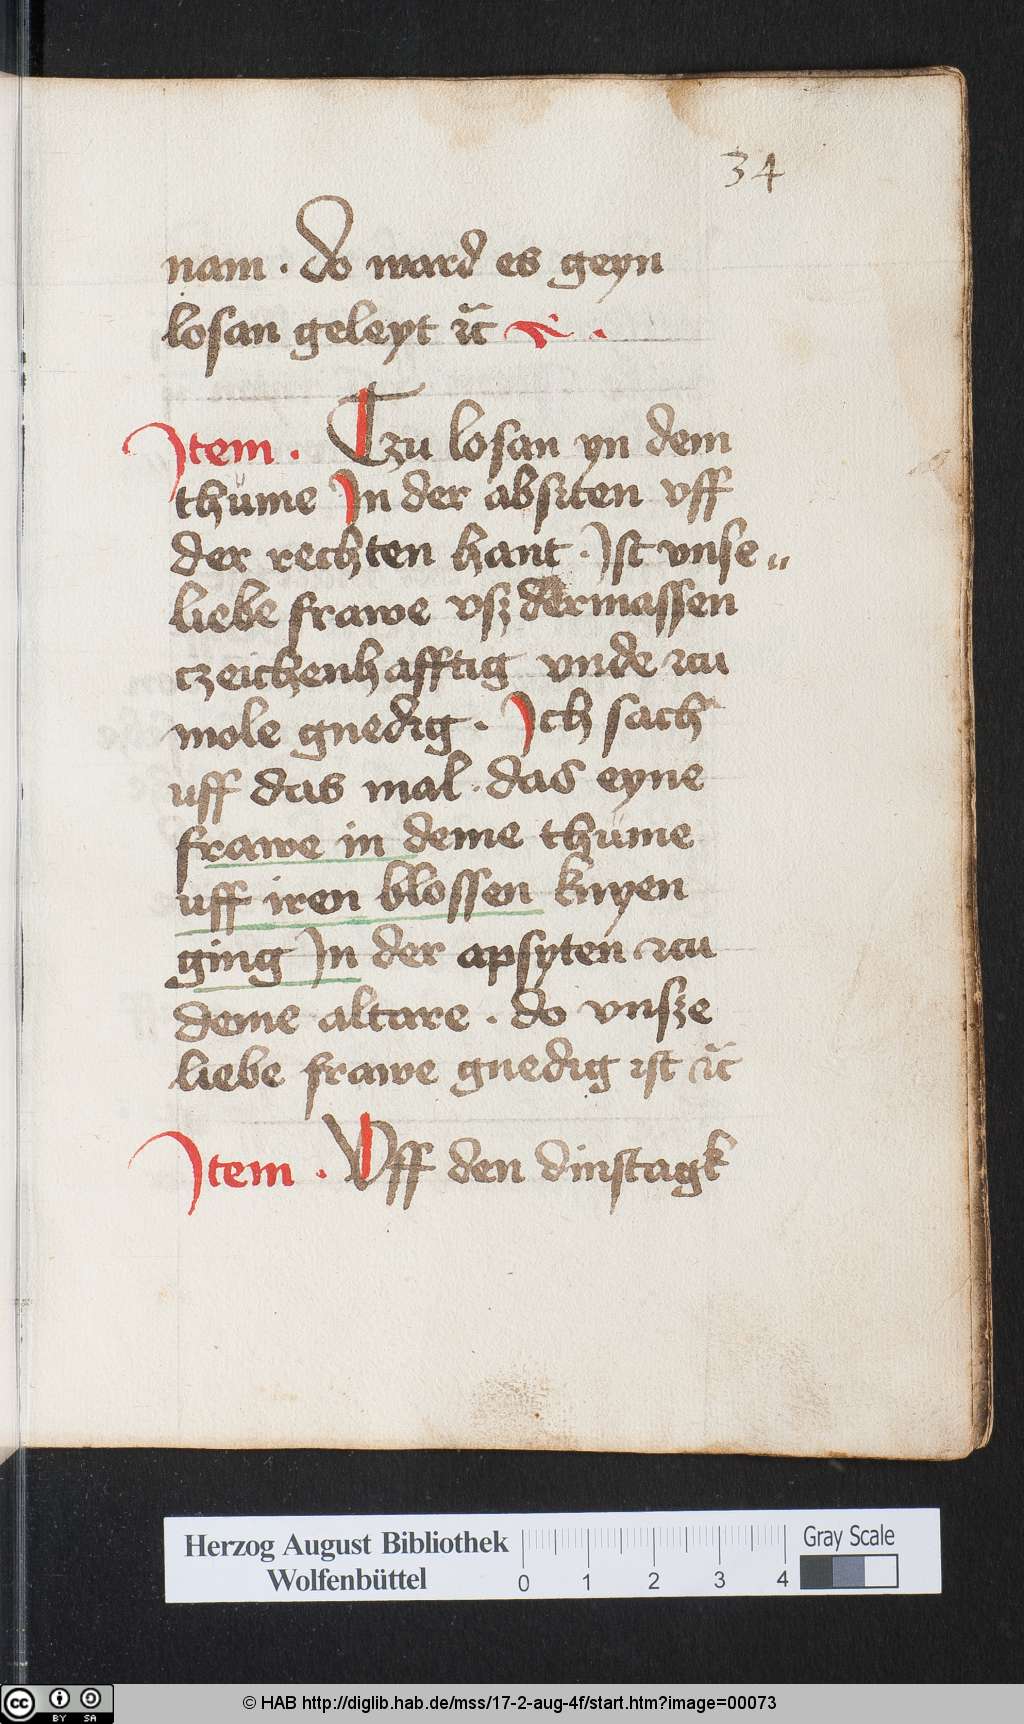 34
nam · do ward es geyn
losan geleyt ꝛc̃
Item · Tzu losan yn dem
thume In der absiten vff
der rechten hant · Ist vnse„
liebe frawe vsz dermassen
tzeichenhafftig vnde zcu
mole gnedig · Ich sach
uff das mal · das eyne
frawe in deme thüme
uff iren blossen knyen
ging In der apsyten zcu
deme altare · do vnsze
liebe frawe gnedig ist ꝛc̃
Item · Vff den dinstagk
Herzog August Bibliothek
Wolfenbüttel
0 1 2 3 4
Gray Scale
cc BY SA
© HAB http://diglib.hab.de/mss/17-2-aug-4f/start.htm?image=00073